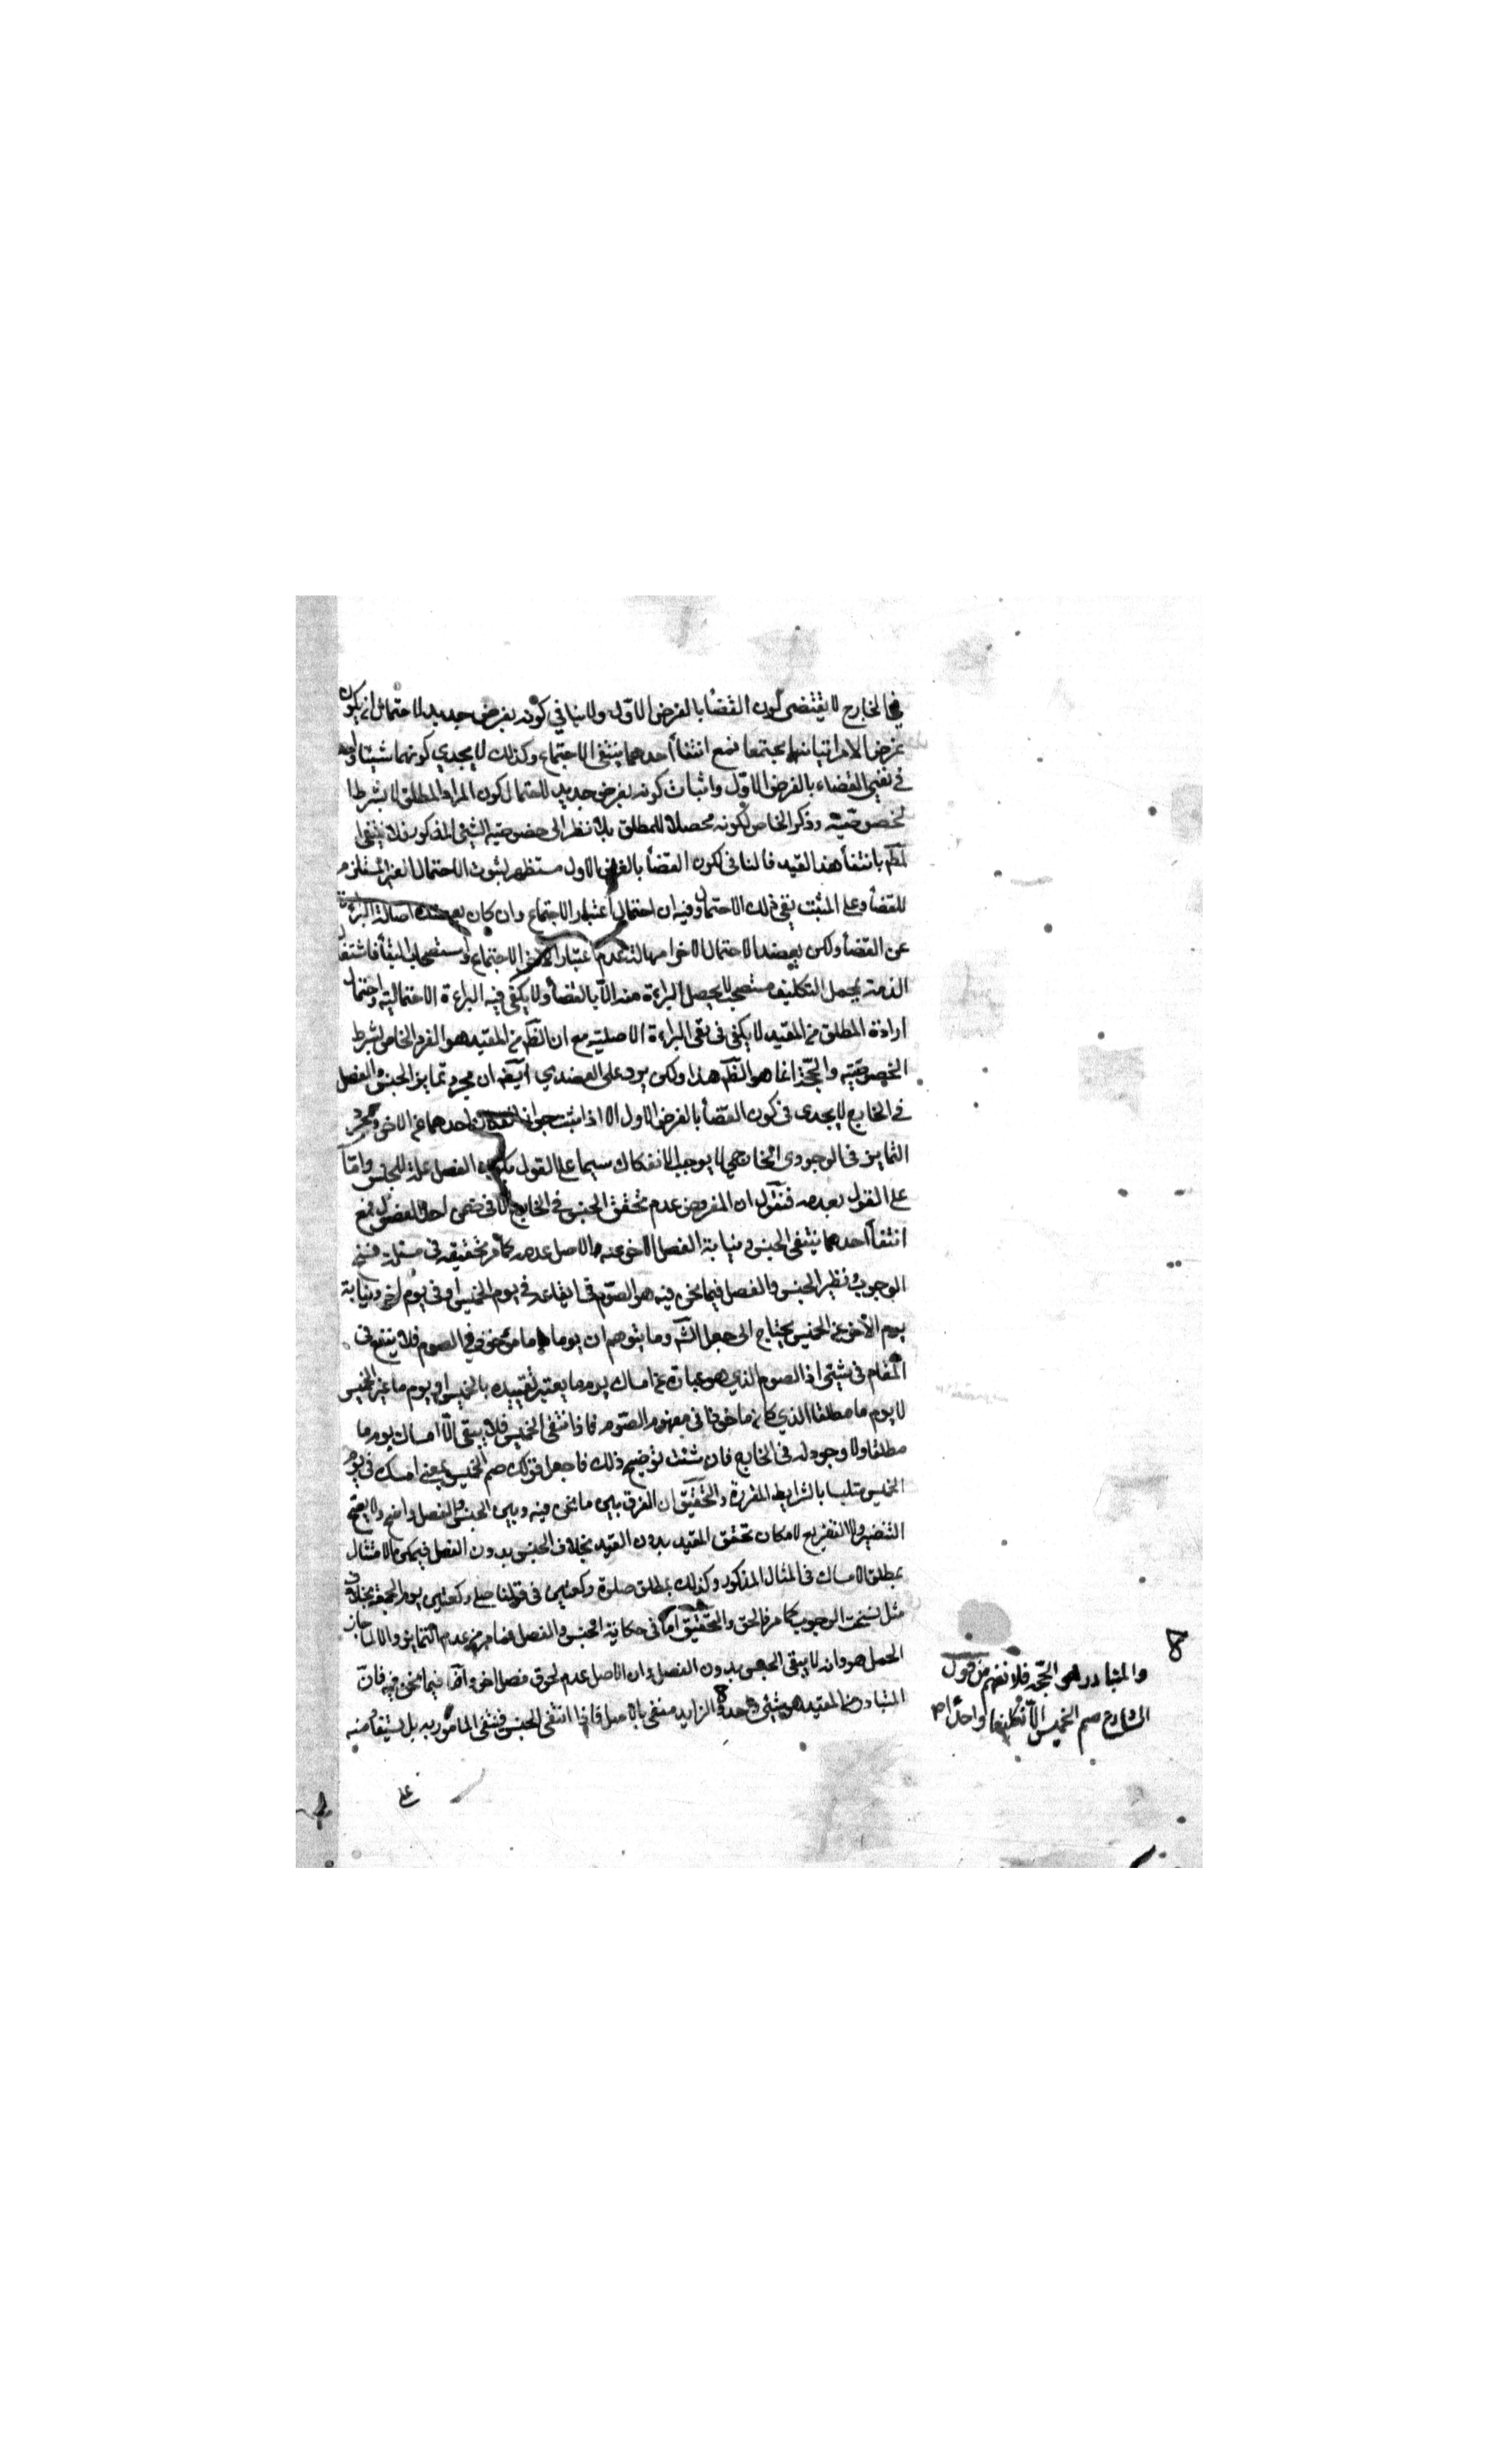 في الخارج لا يقتضي كون القضأ بالفرض الاول ولا ينافي كونه بفرض جديد لاحتمال ان يكون
غرض الامر اتيانهما مجتمعا فمع انتفأ احدهما ينتفى الاجتماع وكذلك لا يجدي كونهما شيئا واحدا
في نفي القضاء بالفرض الاول واثبات كونه بفرض جديد لاحتمال كون المراد المطلق لا بشرط
لخصوصيته وذكر الخاص لكونه محصلا للمطلق بلا نظر الى خصوصية الشيئ المذكور فلا ينتفى
الحكم بانتفأ هذا القيد فالنافى لكون القضأ بالفرض الاول مستظهر لثبوت الاحتمال الغير المستلزم
للقضأ وعلى المثبت نفي ذلك الاحتمال وفيه ان احتمال اعتبار الاجتماع وان كان يعضده اصالة البرائة
عن القضأ ولكن يعضد الاحتمال الاخر امور اعتبار الاجتماع واستصحاب البقأ فاشتغال
الذمة بمجمل التكليف مستصحب لا يحصل البراءة منه الا بالقضأ ولا يكفي فيه البراءة الاحتمالية واحتمال
ارادة المطلق من المقيد لا يكفي فى نفى البراءة الاصلية مع ان الظ من المقيد هو الفرد الخاص بشرط
الخصوصية والحجة انما هو الظ هذا ولكن يرد على العضدي ايض ان مجرد تمايز الجنس والفصل
في الخارج لا يجدى فى كون القضأ بالفرض الاول الا اذا ثبت جواز انفكاك احدهما عن الاخر ومجرد
التمايز فى الوجود الخارجي لا يوجب الانفكاك سيما على القول بكون الفصل علة للجنس واما
على القول بعدمه فنقول ان المفروض عدم تحقق الجنس في الخارج الا فى ضمن احد الفصول فمع
انتفأ احدهما ينتفى الجنس ونيابة الفصل الاخر عنه الاصل عدمه كما مر تحقيقه فى مسئلة نسخ
الوجوب ونظير الجنس والفصل فيما نحن فيه هو الصوم فى ايقاعه في يوم الخميس او فى يوم اخر ونيابة
يوم الاخر عن الخميس يحتاج الى جعل الش وما يتوهم ان يوما ما ماخوذ في الصوم فلا ينفع فى
المقام فى شيئ اذ الصوم الذي هو عبارة عن امساك يوم ما يعتبر تقييده بالخميس او يوم ما غير الخميس
لا يوم ما مطلقا الذي كان ماخوذا فى مفهوم الصوم فاذا انتفى الخميس فلا يبقى الا امساك يوم ما
مطلقا ولا وجود له فى الخارج فان شئت توضيح ذلك فاجعل قولك صم الخميس بمعنى امسك فى يوم
الخميس متلبسا بالشرايط المقررة والتحقيق ان الفرق بين ما نحن فيه وبين الجنس والفصل واضح ولا يصح
التنظير ولا التفريع لامكان تحقق المقيد بدون القيد بخلاف الجنس بدون الفصل فيمكن الامتثال
بمطلق الامساك فى المثال المذكور وكذلك بمطلق صلوة ركعتين فى قولنا صل ركعتين يوم الجمعة بخلاف
مثل نسخت الوجوب كما مر فالحق والتحقيق اما فى حكاية الجنس والفصل فما مر من عدم التمايز والا لجاز
الحمل هو وانه لا يبقى الجنس بدون الفصل وان الاصل عدم لحوق فصل اخر واما فيما نحن فيه فان
المتبادر من المقيد هو شيئ واحد والزايد منفى بالاصل فاذا انتفى الجنس فينتفى المامور به بل يستفأ منه
على
والمتبادر هو الحجة فلا نفهم من قول
الشارع صم الخميس الا تكليفا واحدا